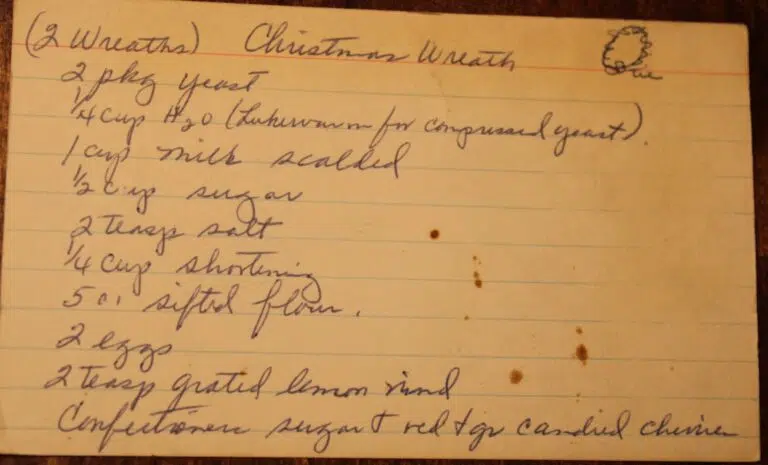 (2 Wreaths) Christmas Wreath
2 pkg yeast
1/4 cup H2O (Lukewarm for compressed yeast).
1 cup milk scalded
1/2 cup sugar
2 teasp salt
1/4 cup shortening
5 c. sifted flour.
2 eggs
2 teasp grated lemon rind
Confectioners sugar & red & gr candied cherries